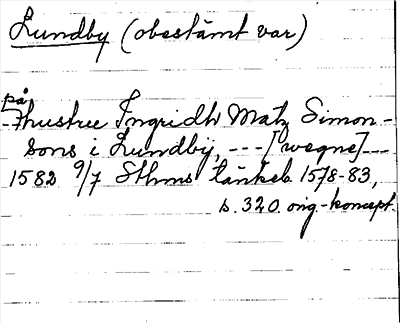 Lundby (obestämt var)
på
- - hustru Ingridh Matz Simon-
sons i Lundbÿ, --- [wegne] ---
1582 9/7 Sthms tänkeb. 1578-83,
s. 320. orig.-koncept.